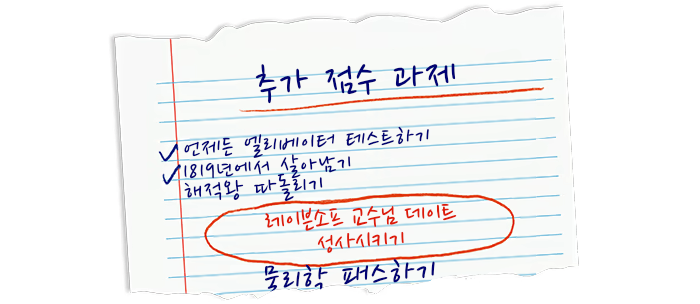 추가 점수 과제
언제든 엘리베이터 테스트하기
1819년에서 살아남기
해적왕 따돌리기
레이븐소프 교수님 데이트
성사시키기
물리학 패스하기